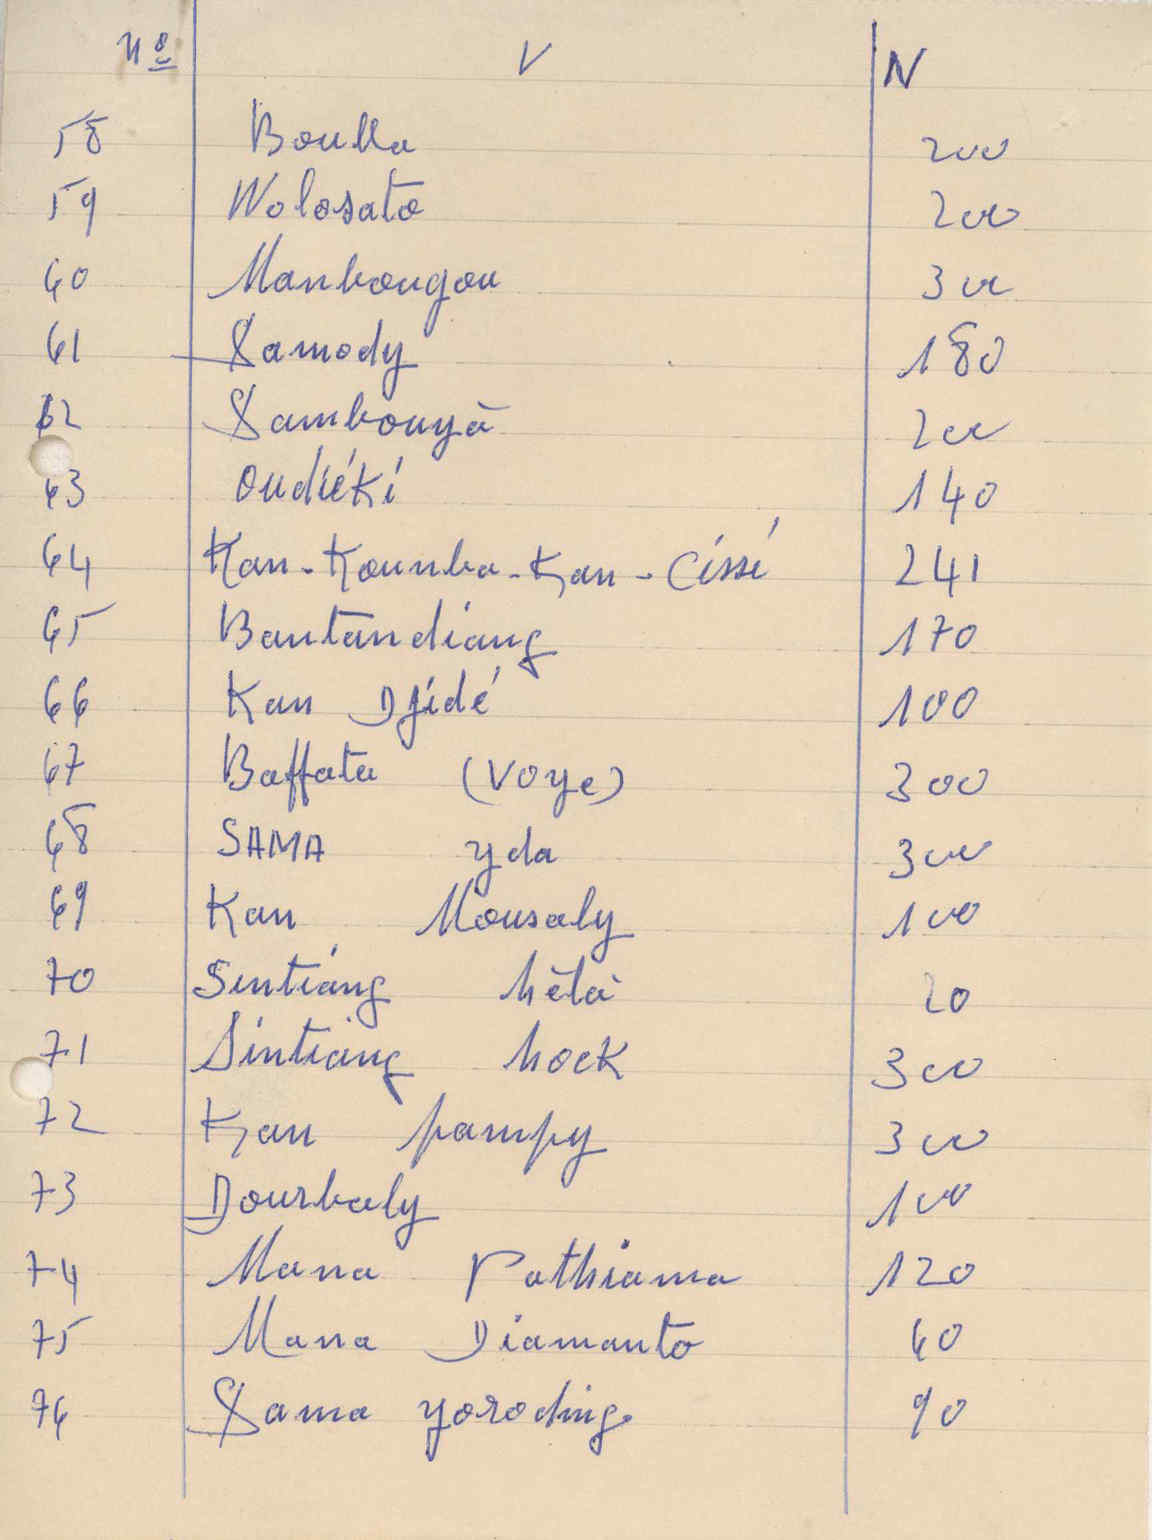 Nº V N
58 Boulla 200
59 Wolosato 200
60 Manbougou 300
61 Samody 180
62 Sambouyà 200
63 Oudiéki 140
64 Kan-Kounba-Kan-Cissé 241
65 Bantandiang 170
66 Kan Djidé 100
67 Baffata (Voye) 300
68 SAMA yda 300
69 Kan Mousaly 100
70 Sintiang hèla 20
71 Sintiang hock 300
72 Kan pampy 300
73 Dourbaly 100
74 Mana Pathiama 120
75 Mana Diamanto 60
76 Sama yoroding 90